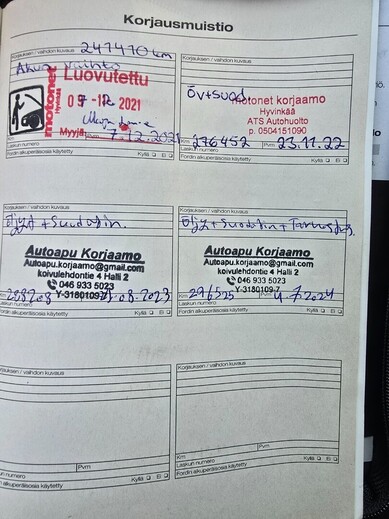 Korjausmuistio
Korjauksen / vaihdon kuvaus 247470 km
Akun vaihto
Luovutettu
motonet
Hyvinkää
07-12 2021
Myyjä
7.12.2021
Laskun numero
Fordin alkuperäisosia käytetty Kyllä Ei
Korjauksen / vaihdon kuvaus
Öv+suod
motonet korjaamo
Hyvinkää
ATS Autohuolto
p. 0504151090
Km 276452 Pvm 23.11.22
Laskun numero
Fordin alkuperäisosia käytetty Kyllä Ei
Korjauksen / vaihdon kuvaus
Öljyt + Suodatin.
Autoapu Korjaamo
Autoapu.korjaamo@gmail.com
koivulehdontie 4 Halli 2
046 933 5023
Y-3180109-7
Km 288208 .08.2023
Laskun numero
Fordin alkuperäisosia käytetty Kyllä Ei
Korjauksen / vaihdon kuvaus
Öljy + Suodatin + Tarkastus.
Autoapu Korjaamo
Autoapu.korjaamo@gmail.com
koivulehdontie 4 Halli 2
046 933 5023
Y-3180109-7
Km 296525 Pvm 4.7.2024
Laskun numero
Fordin alkuperäisosia käytetty Kyllä Ei
Korjauksen / vaihdon kuvaus
Km Pvm
Laskun numero
Fordin alkuperäisosia käytetty Kyllä Ei
Korjauksen / vaihdon kuvaus
Km Pvm
Laskun numero
Fordin alkuperäisosia käytetty Kyllä Ei